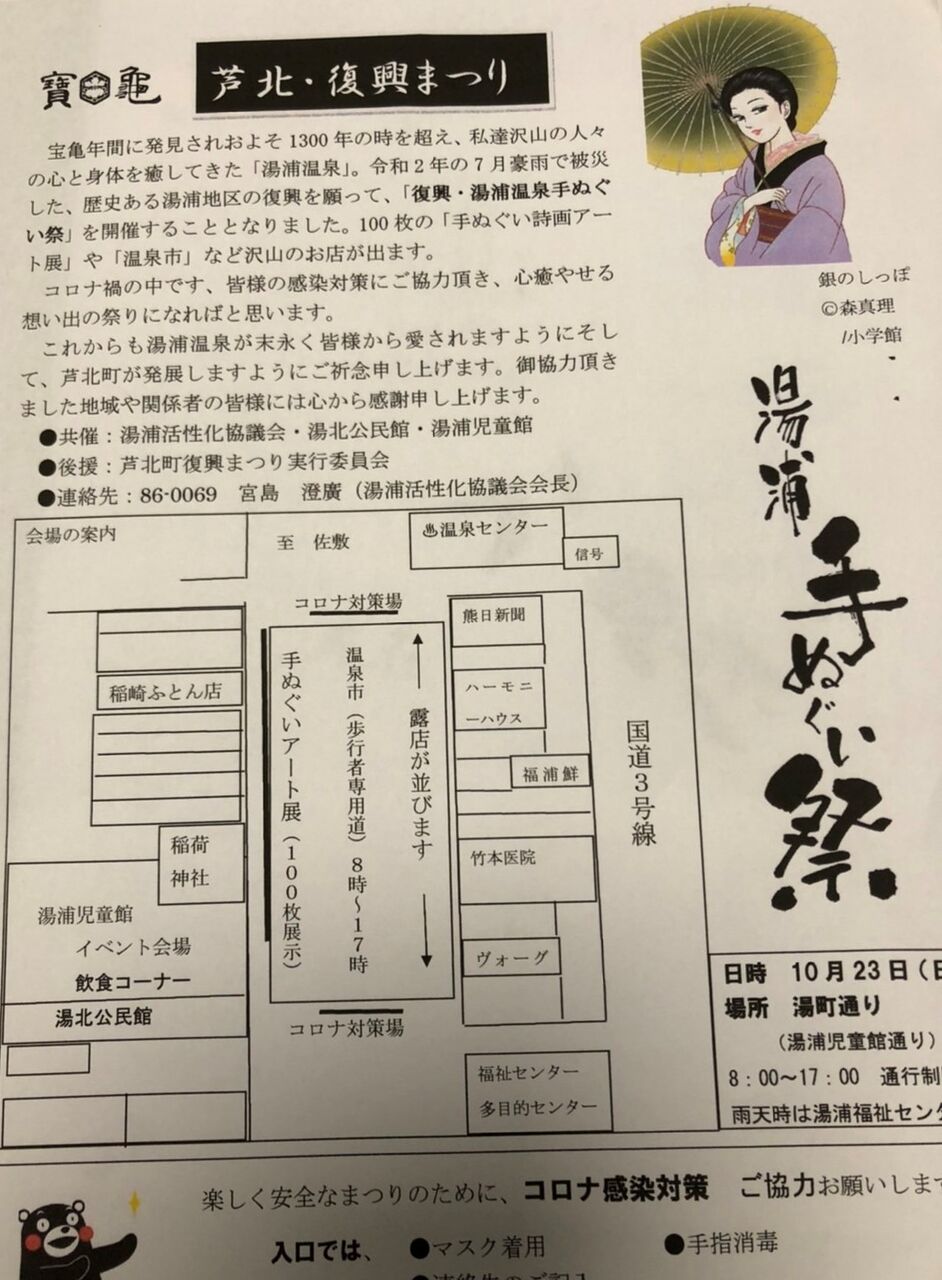 寶龜
芦北・復興まつり
宝亀年間に発見されおよそ1300年の時を超え、私達沢山の人々
の心と身体を癒してきた「湯浦温泉」。令和2年の7月豪雨で被災
した、歴史ある湯浦地区の復興を願って、「復興・湯浦温泉手ぬぐ
い祭」を開催することとなりました。100枚の「手ぬぐい詩画アー
ト展」や「温泉市」など沢山のお店が出ます。
コロナ禍の中です、皆様の感染対策にご協力頂き、心癒やせる
想い出の祭りになればと思います。
これからも湯浦温泉が末永く皆様から愛されますようにそし
て、芦北町が発展しますようにご祈念申し上げます。御協力頂き
ました地域や関係者の皆様には心から感謝申し上げます。
●共催：湯浦活性化協議会・湯北公民館・湯浦児童館
●後援：芦北町復興まつり実行委員会
●連絡先：86-0069 宮島 澄廣（湯浦活性化協議会会長）
銀のしっぽ
©森真理
/小学館
湯浦
手ぬぐい祭
会場の案内
至 佐敷
♨温泉センター
信号
コロナ対策場
熊日新聞
ハーモニ
ーハウス
福浦鮮
竹本医院
ヴォーグ
国道3号線
露店が並びます
温泉市（歩行者専用道）8時～17時
手ぬぐいアート展（100枚展示）
稲崎ふとん店
稲荷
神社
湯浦児童館
イベント会場
飲食コーナー
湯北公民館
コロナ対策場
福祉センター
多目的センター
日時 10月23日（日
場所 湯町通り
（湯浦児童館通り）
8：00～17：00 通行制
雨天時は湯浦福祉セン
楽しく安全なまつりのために、コロナ感染対策 ご協力お願いしま
入口では、 ●マスク着用 ●手指消毒
●連絡先のご記入